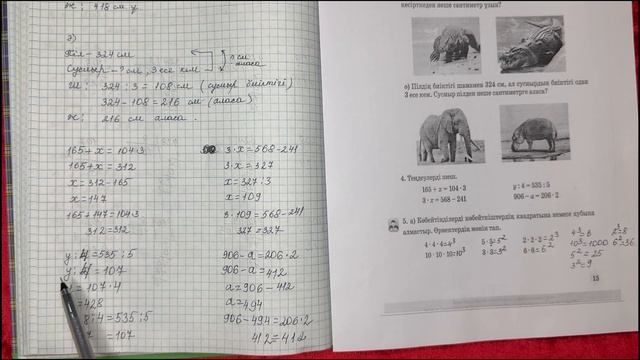 ж: 418 см ұ
2)
Піл - 324 см
Сусиыр - ? см, 3 есе кем
? см аласа
Ш: 324 : 3 = 108 см (сусиыр биіктігі)
324 - 108 = 216 см (аласа)
ж: 216 см аласа.
165 + x = 104·3
165 + x = 312
x = 312 - 165
x = 147
165 + 147 = 104·3
312 = 312
3·x = 568 - 241
3·x = 327
x = 327 : 3
x = 109
3·109 = 568 - 241
327 = 327
y : 4 = 535 : 5
y : 4 = 107
= 107·4
= 428
8 : 4 = 535 : 5
= 107
906 - a = 206·2
906 - a = 412
a = 906 - 412
a = 494
906 - 494 = 206·2
412 = 412
кесірткеден неше сантиметр ұзын?
ә) Пілдің биіктігі шамамен 324 см, ал сусиырдың биіктігі одан
3 есе кем. Сусиыр пілден неше сантиметрге аласа?
4. Теңдеулерді шеш.
165 + x = 104 · 3
3 · x = 568 – 241
y : 4 = 535 : 5
906 – a = 206 · 2
5. а) Көбейтінділерді көбейткіштердің квадратына немесе кубына
алмастыр. Өрнектердің мәнін тап.
4 · 4 · 4=4³ 5 · 5=5² 2 · 2 · 2=2³
10 · 10 · 10=10³ 3 · 3=3² 6 · 6=6²
4³=8
10³=1000
5²=25
3²=9
2³=8
6²=36
15